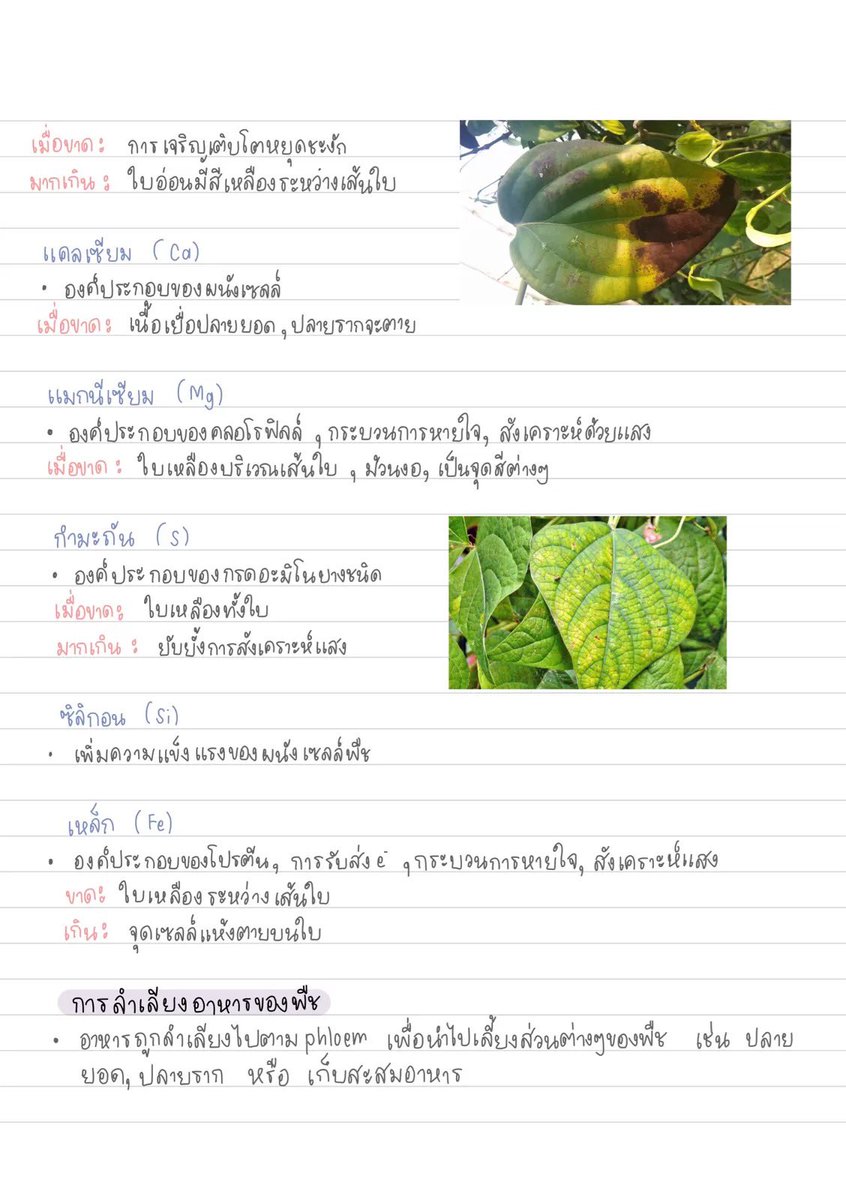 เมื่อขาด: การเจริญเติบโตหยุดชะงัก
มากเกิน: ใบอ่อนมีสีเหลืองระหว่างเส้นใบ
แคลเซียม (Ca)
• องค์ประกอบของผนังเซลล์
เมื่อขาด: เนื้อเยื่อปลายยอด, ปลายรากจะตาย
แมกนีเซียม (Mg)
• องค์ประกอบของคลอโรฟิลล์, กระบวนการหายใจ, สังเคราะห์ด้วยแสง
เมื่อขาด: ใบเหลืองบริเวณเส้นใบ, ม้วนงอ, เป็นจุดสีต่างๆ
กำมะถัน (S)
• องค์ประกอบของกรดอะมิโนบางชนิด
เมื่อขาด: ใบเหลืองทั้งใบ
มากเกิน: ยับยั้งการสังเคราะห์แสง
ซิลิกอน (Si)
• เพิ่มความแข็งแรงของผนังเซลล์พืช
เหล็ก (Fe)
• องค์ประกอบของโปรตีน, การรับส่ง e⁻, กระบวนการหายใจ, สังเคราะห์แสง
ขาด: ใบเหลืองระหว่างเส้นใบ
เกิน: จุดเซลล์แห้งตายบนใบ
การลำเลียงอาหารของพืช
• อาหารถูกลำเลียงไปตาม phloem เพื่อนำไปเลี้ยงส่วนต่างๆของพืช เช่น ปลาย
ยอด, ปลายราก หรือ เก็บสะสมอาหาร